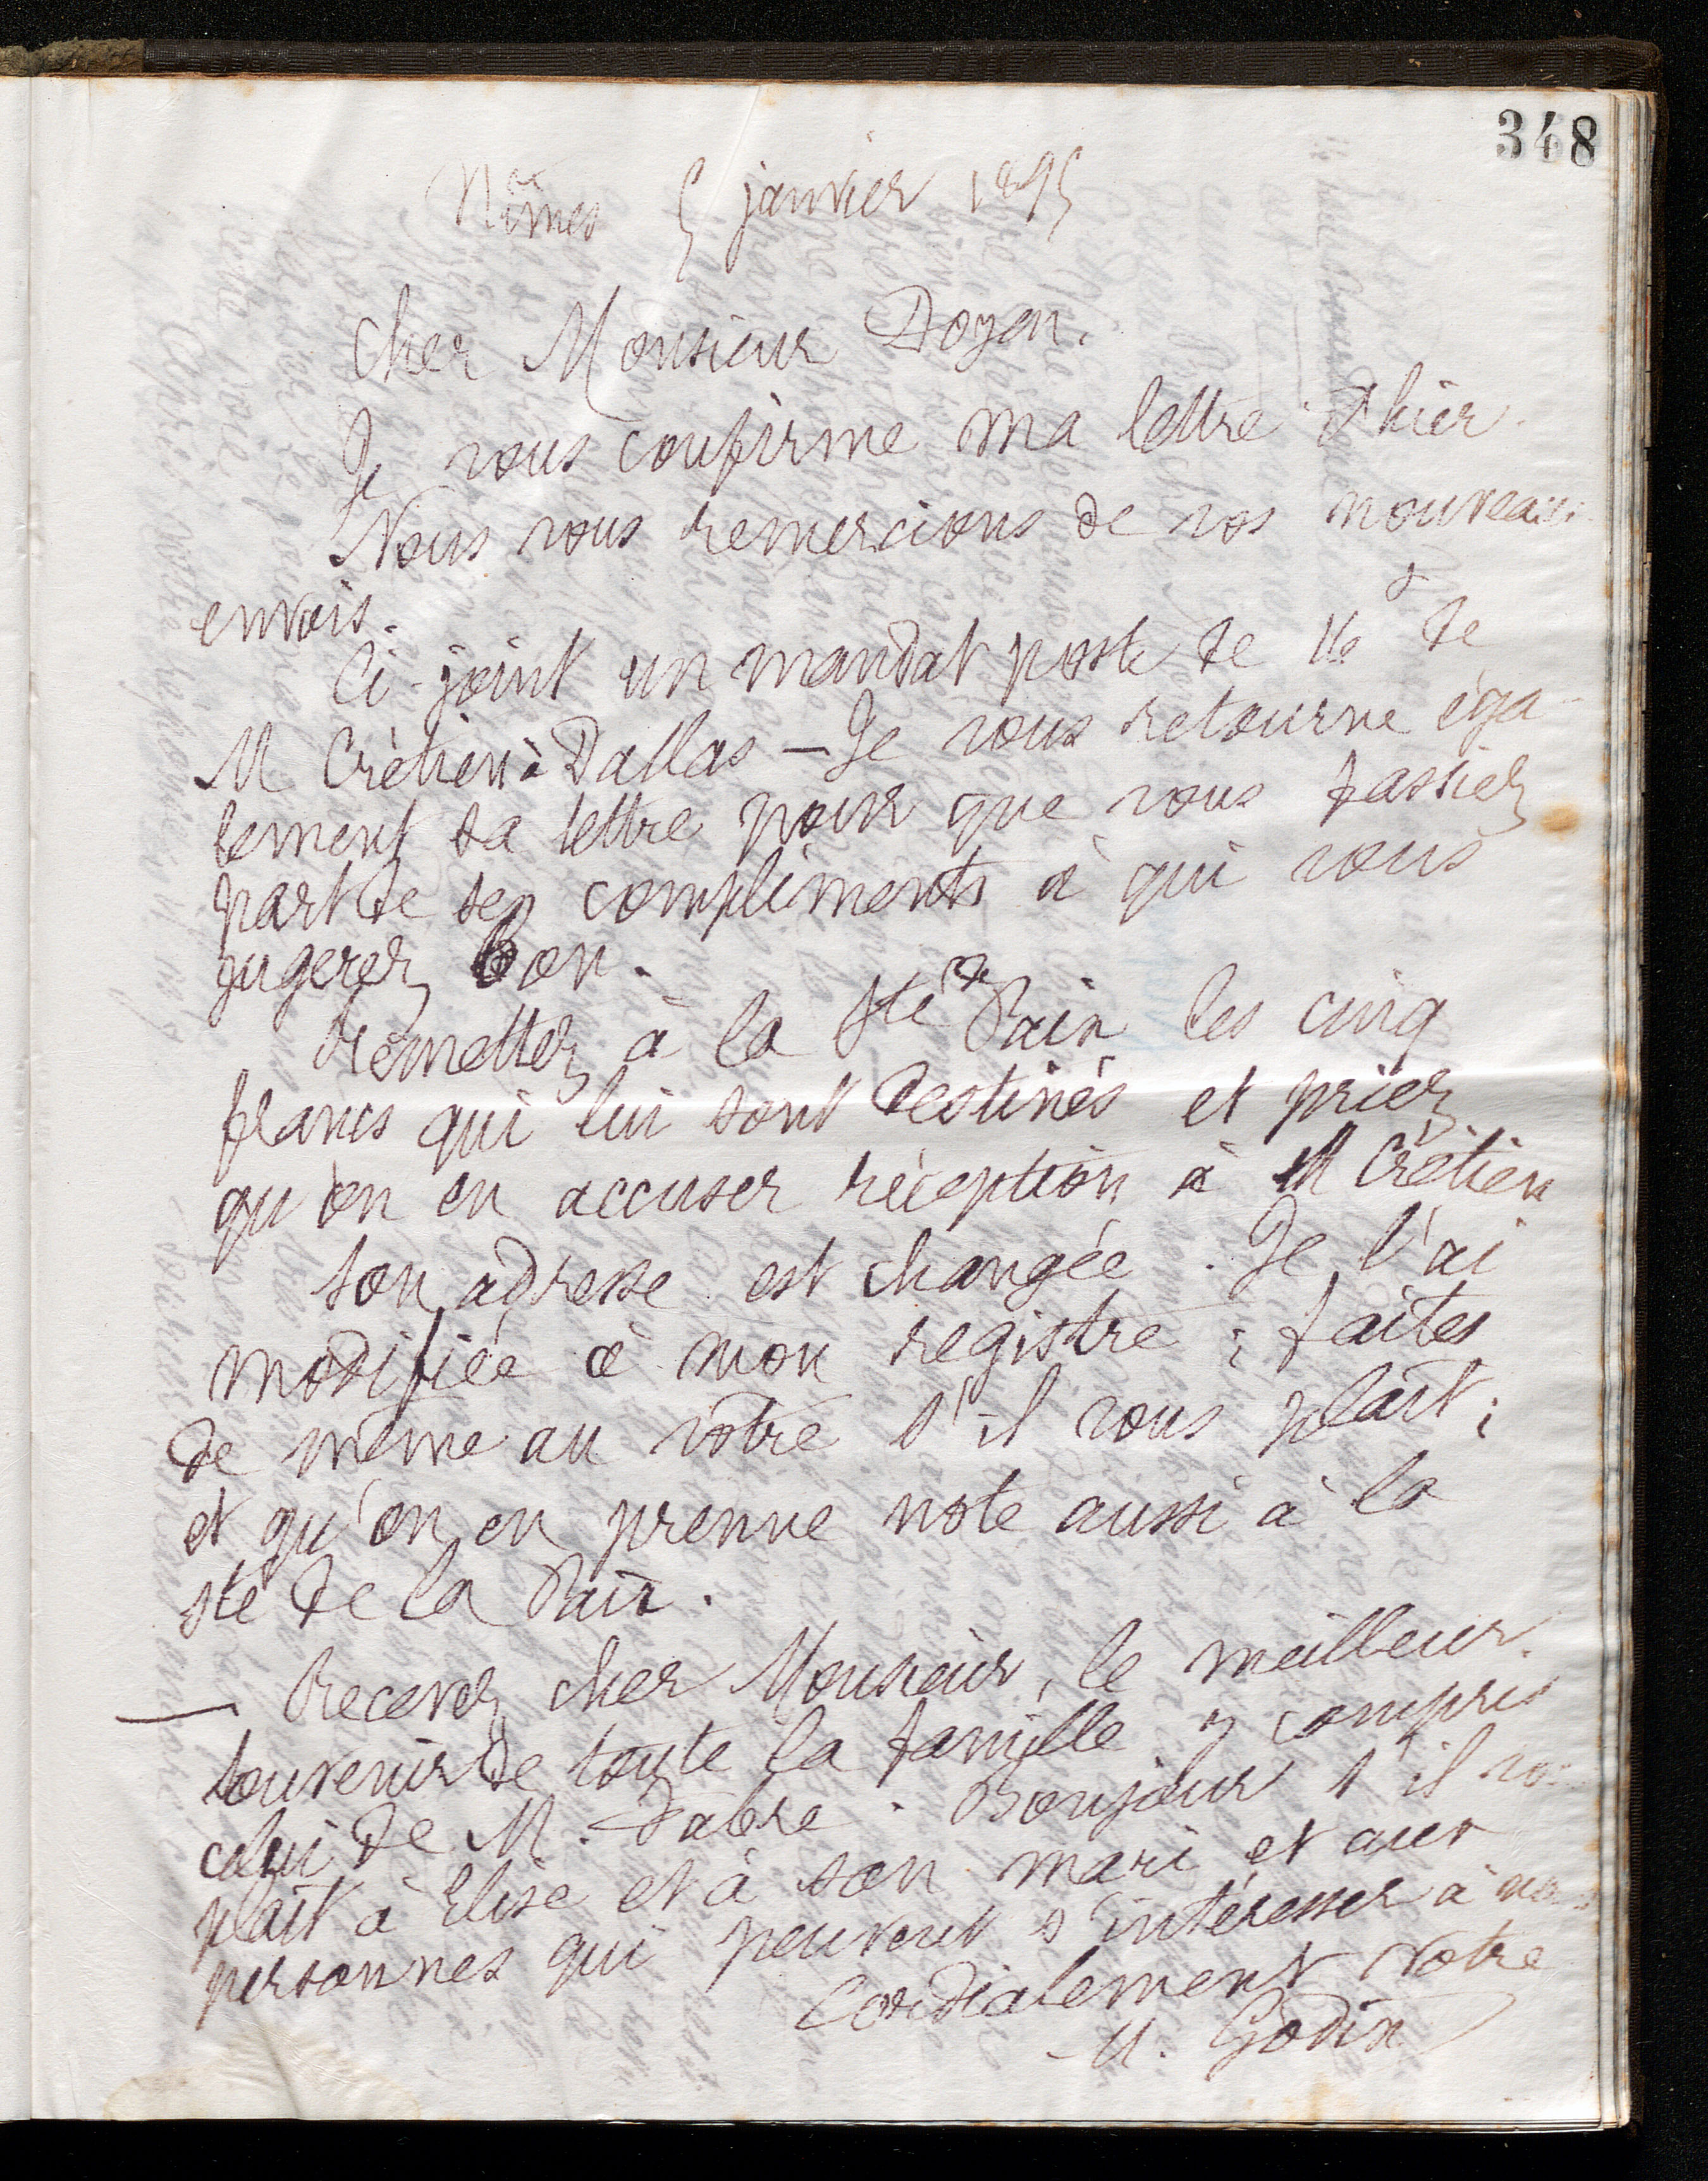 348
Nîmes 5 janvier 1895
Cher Monsieur Doyen.
Je vous confirme ma lettre d'hier.
Nous vous remercions de vos nouveaux
envois.
Ci-joint un mandat poste de de
M Crétien à Dallas — Je vous retourne éga-
lement sa lettre pour que vous fassiez
part de ses compliments à qui vous
jugerez bon.
Remettez à la Sté de Paix les cinq
francs qui lui sont destinés et priez
qu'on en accuser réception à M Crétien
Son adresse est changée. Je l'ai
modifiée à mon registre ; faites
de même au vôtre s'il vous plaît ;
et qu'on en prenne note aussi à la
Sté de la Paix.
— Recevez cher Monsieur, le meilleur
souvenir de toute la famille y compris
celui de M. Fabre. Bonjour s'il vous
plaît à Elise et à son mari et aux
personnes qui peuvent s'intéresser à nous
Cordialement votre
M. Godin